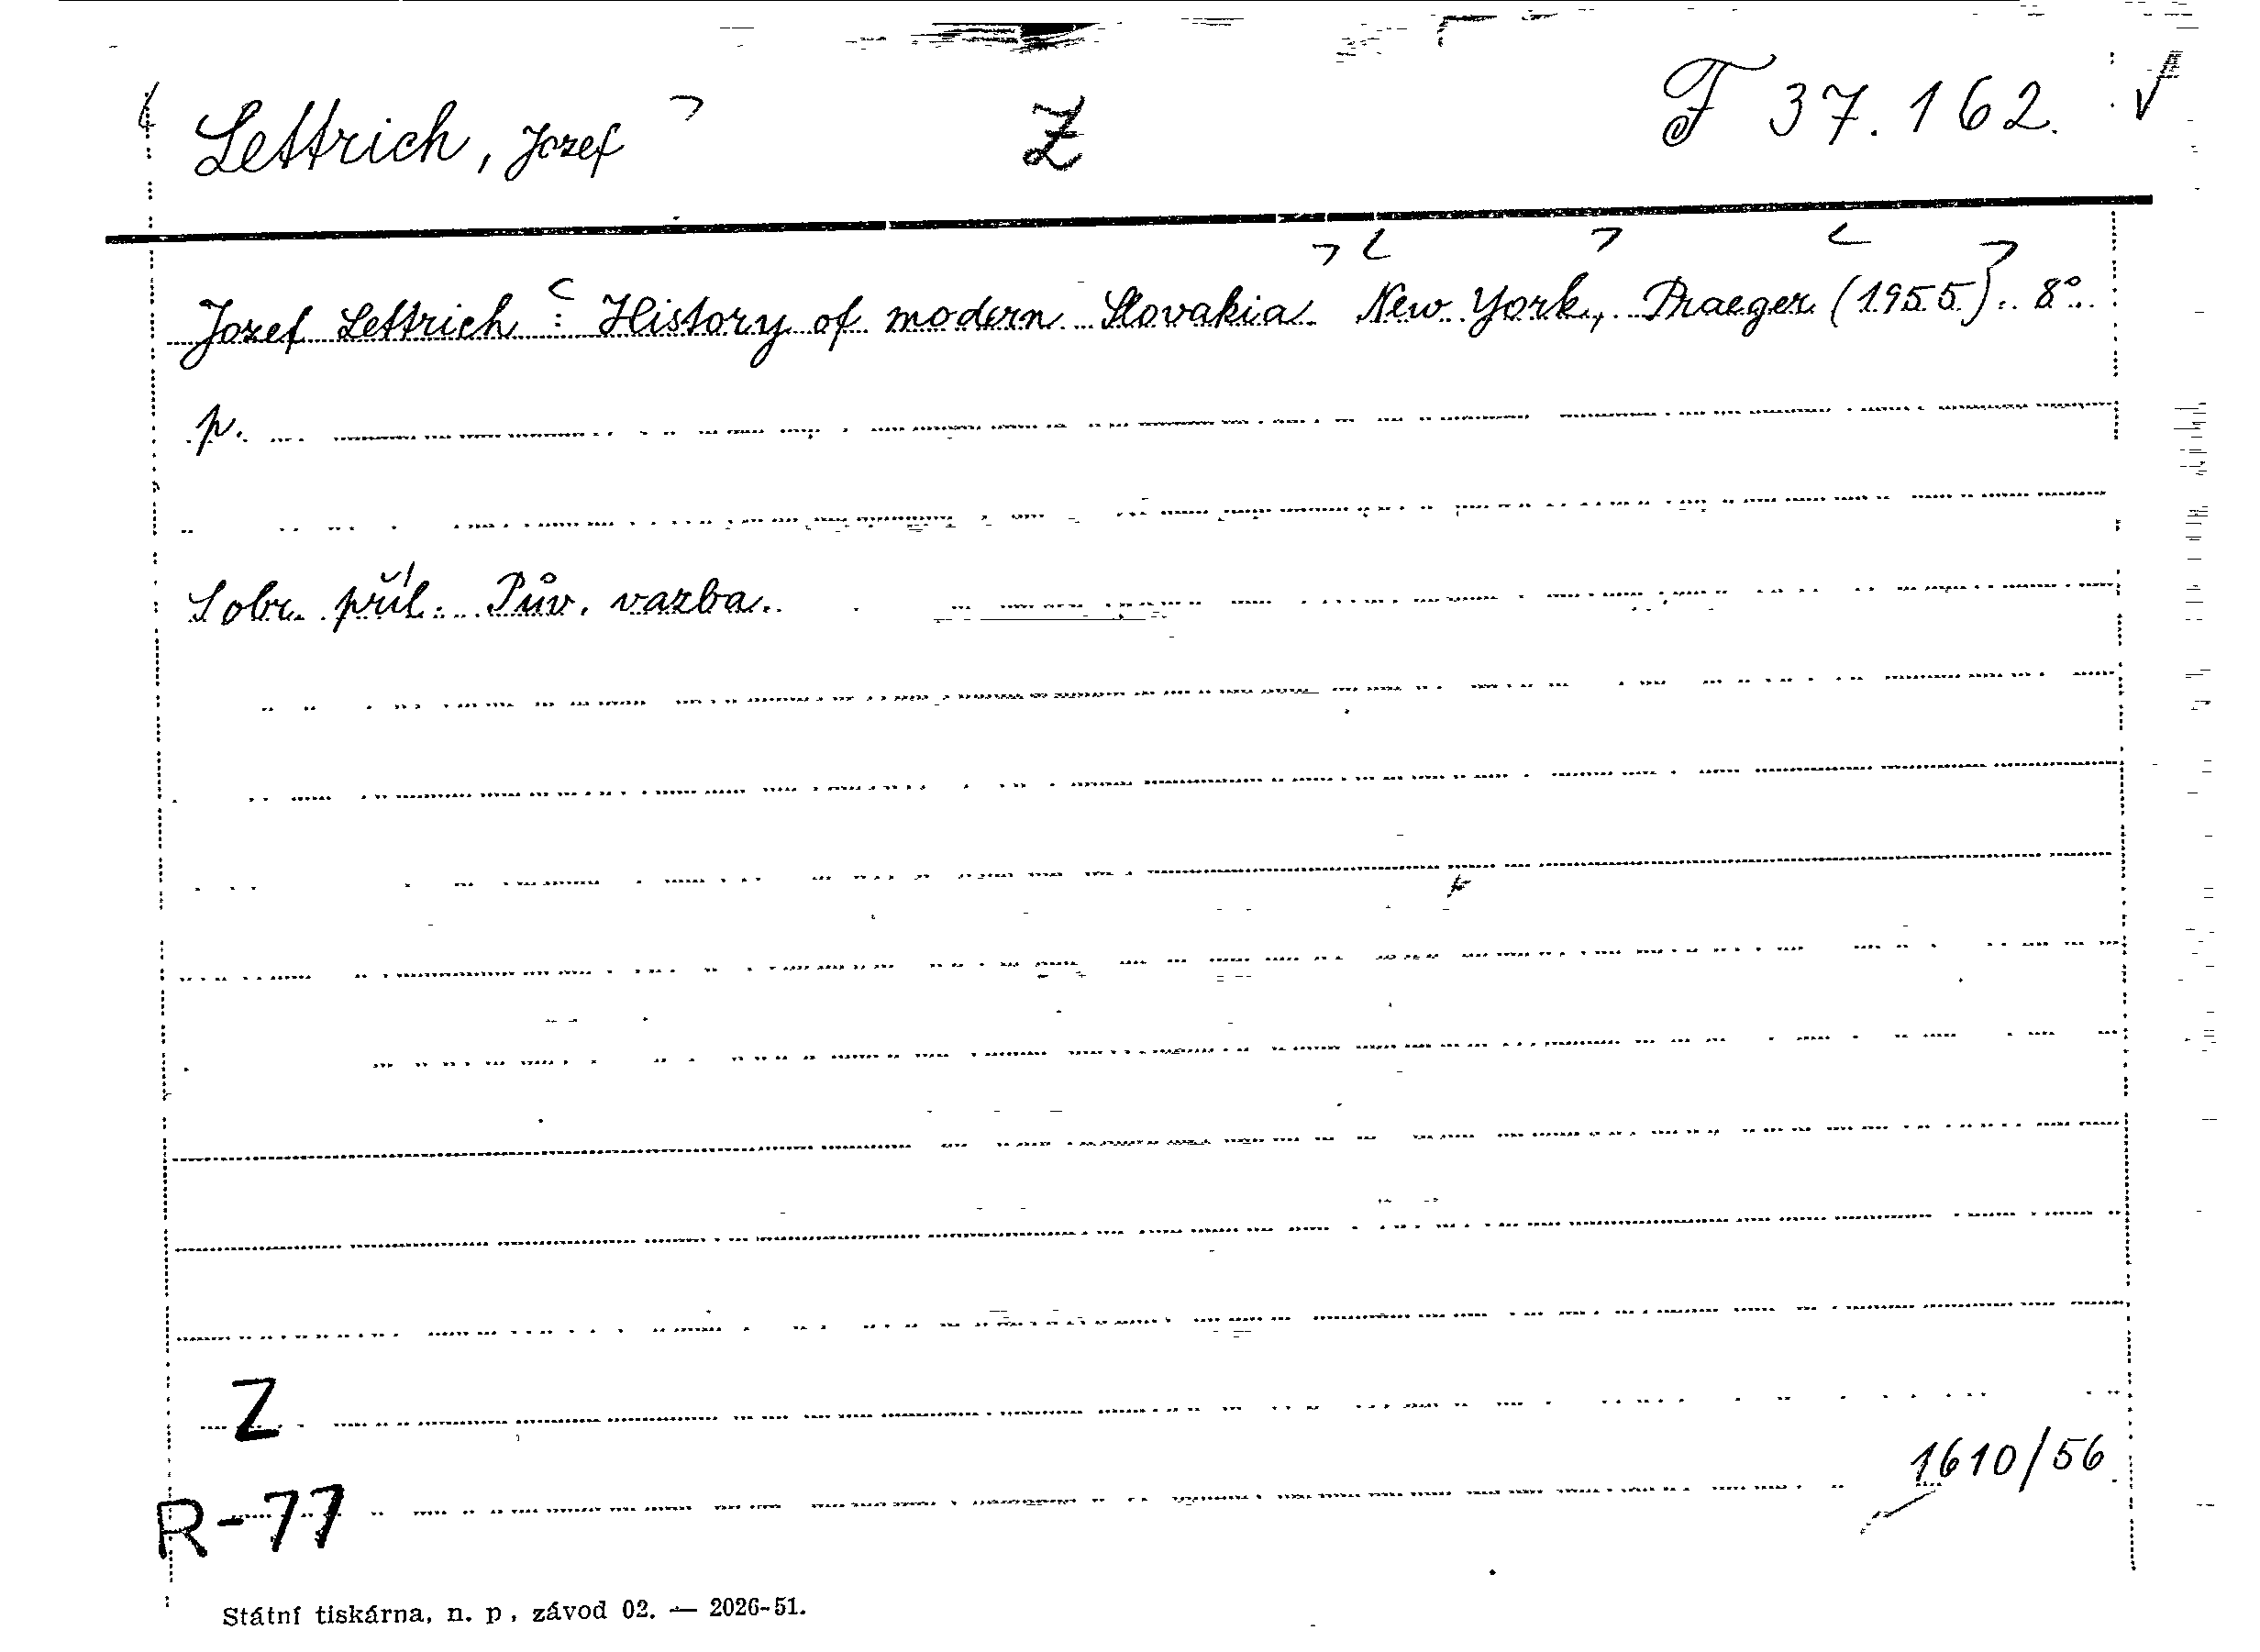 Lettrich, Jozef Z F 37.162.
Jozef Lettrich : History of modern Slovakia. New York, Praeger (1955). 8°.
p.
S obr. příl. Pův. vazba.
Z
1610/56
R-77
Státní tiskárna, n. p., závod 02. — 2026-51.